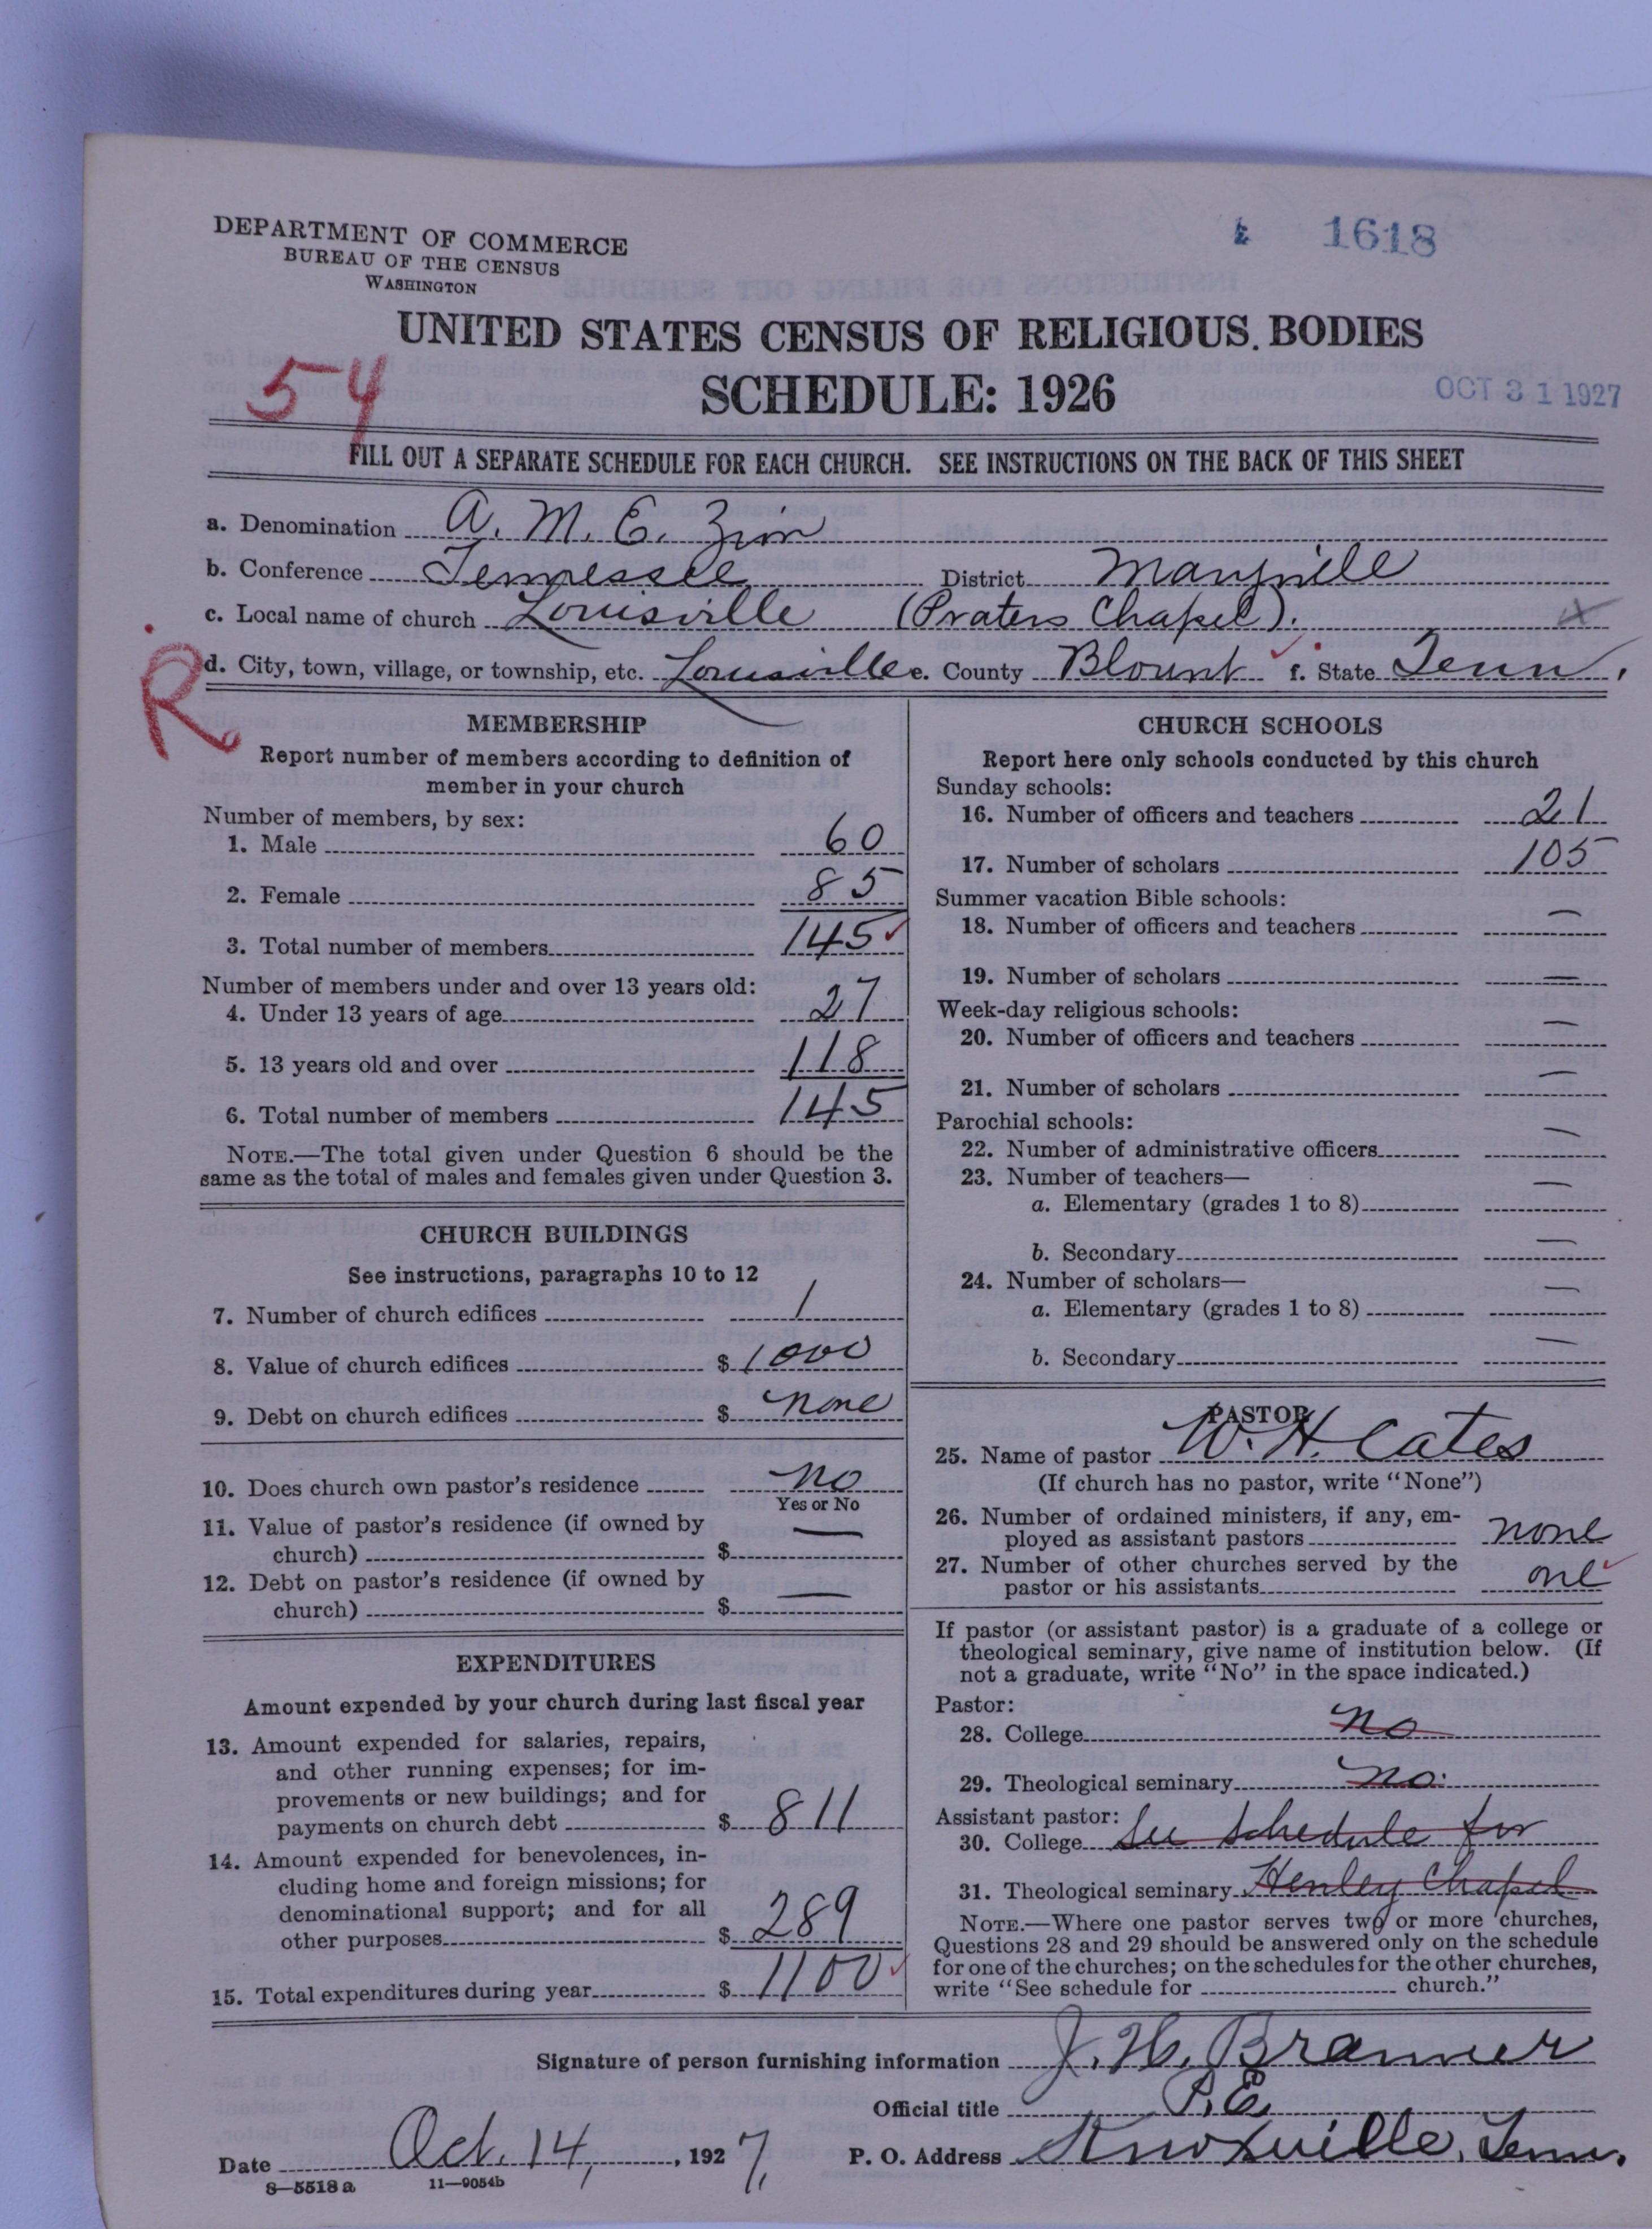 DEPARTMENT OF COMMERCE
BUREAU OF THE CENSUS
WASHINGTON
1618
UNITED STATES CENSUS OF RELIGIOUS BODIES
54
SCHEDULE: 1926
OCT 31 1927
FILL OUT A SEPARATE SCHEDULE FOR EACH CHURCH. SEE INSTRUCTIONS ON THE BACK OF THIS SHEET
a. Denomination A. M. E. Zion
b. Conference Tennessee District Maryville
c. Local name of church Louisville (Praters Chapel).
d. City, town, village, or township, etc. Louisville e. County Blount f. State Tenn.
R
MEMBERSHIP
Report number of members according to definition of
member in your church
Number of members, by sex:
1. Male 60
2. Female 85
3. Total number of members 145
Number of members under and over 13 years old:
4. Under 13 years of age 27
5. 13 years old and over 118
6. Total number of members 145
NOTE.—The total given under Question 6 should be the
same as the total of males and females given under Question 3.
CHURCH BUILDINGS
See instructions, paragraphs 10 to 12
7. Number of church edifices 1
8. Value of church edifices $ 1000
9. Debt on church edifices $ none
10. Does church own pastor's residence no
Yes or No
11. Value of pastor's residence (if owned by
church) $ —
12. Debt on pastor's residence (if owned by
church) $ —
EXPENDITURES
Amount expended by your church during last fiscal year
13. Amount expended for salaries, repairs,
and other running expenses; for im-
provements or new buildings; and for
payments on church debt $ 811
14. Amount expended for benevolences, in-
cluding home and foreign missions; for
denominational support; and for all
other purposes $ 289
15. Total expenditures during year $ 1100
CHURCH SCHOOLS
Report here only schools conducted by this church
Sunday schools:
16. Number of officers and teachers 21
17. Number of scholars 105
Summer vacation Bible schools:
18. Number of officers and teachers —
19. Number of scholars —
Week-day religious schools:
20. Number of officers and teachers —
21. Number of scholars —
Parochial schools:
22. Number of administrative officers —
23. Number of teachers—
a. Elementary (grades 1 to 8) —
b. Secondary —
24. Number of scholars—
a. Elementary (grades 1 to 8) —
b. Secondary —
PASTOR
25. Name of pastor W. H. Cates
(If church has no pastor, write "None")
26. Number of ordained ministers, if any, em-
ployed as assistant pastors none
27. Number of other churches served by the
pastor or his assistants one
If pastor (or assistant pastor) is a graduate of a college or
theological seminary, give name of institution below. (If
not a graduate, write "No" in the space indicated.)
Pastor:
28. College no
29. Theological seminary no.
Assistant pastor:
30. College See schedule for
31. Theological seminary Henley Chapel
NOTE.—Where one pastor serves two or more churches,
Questions 28 and 29 should be answered only on the schedule
for one of the churches; on the schedules for the other churches,
write "See schedule for church."
Signature of person furnishing information J. H. Branner
Official title P. E.
Date Oct. 14, 1927, P. O. Address Knoxville, Tenn.
8—5518 a 11—9054b